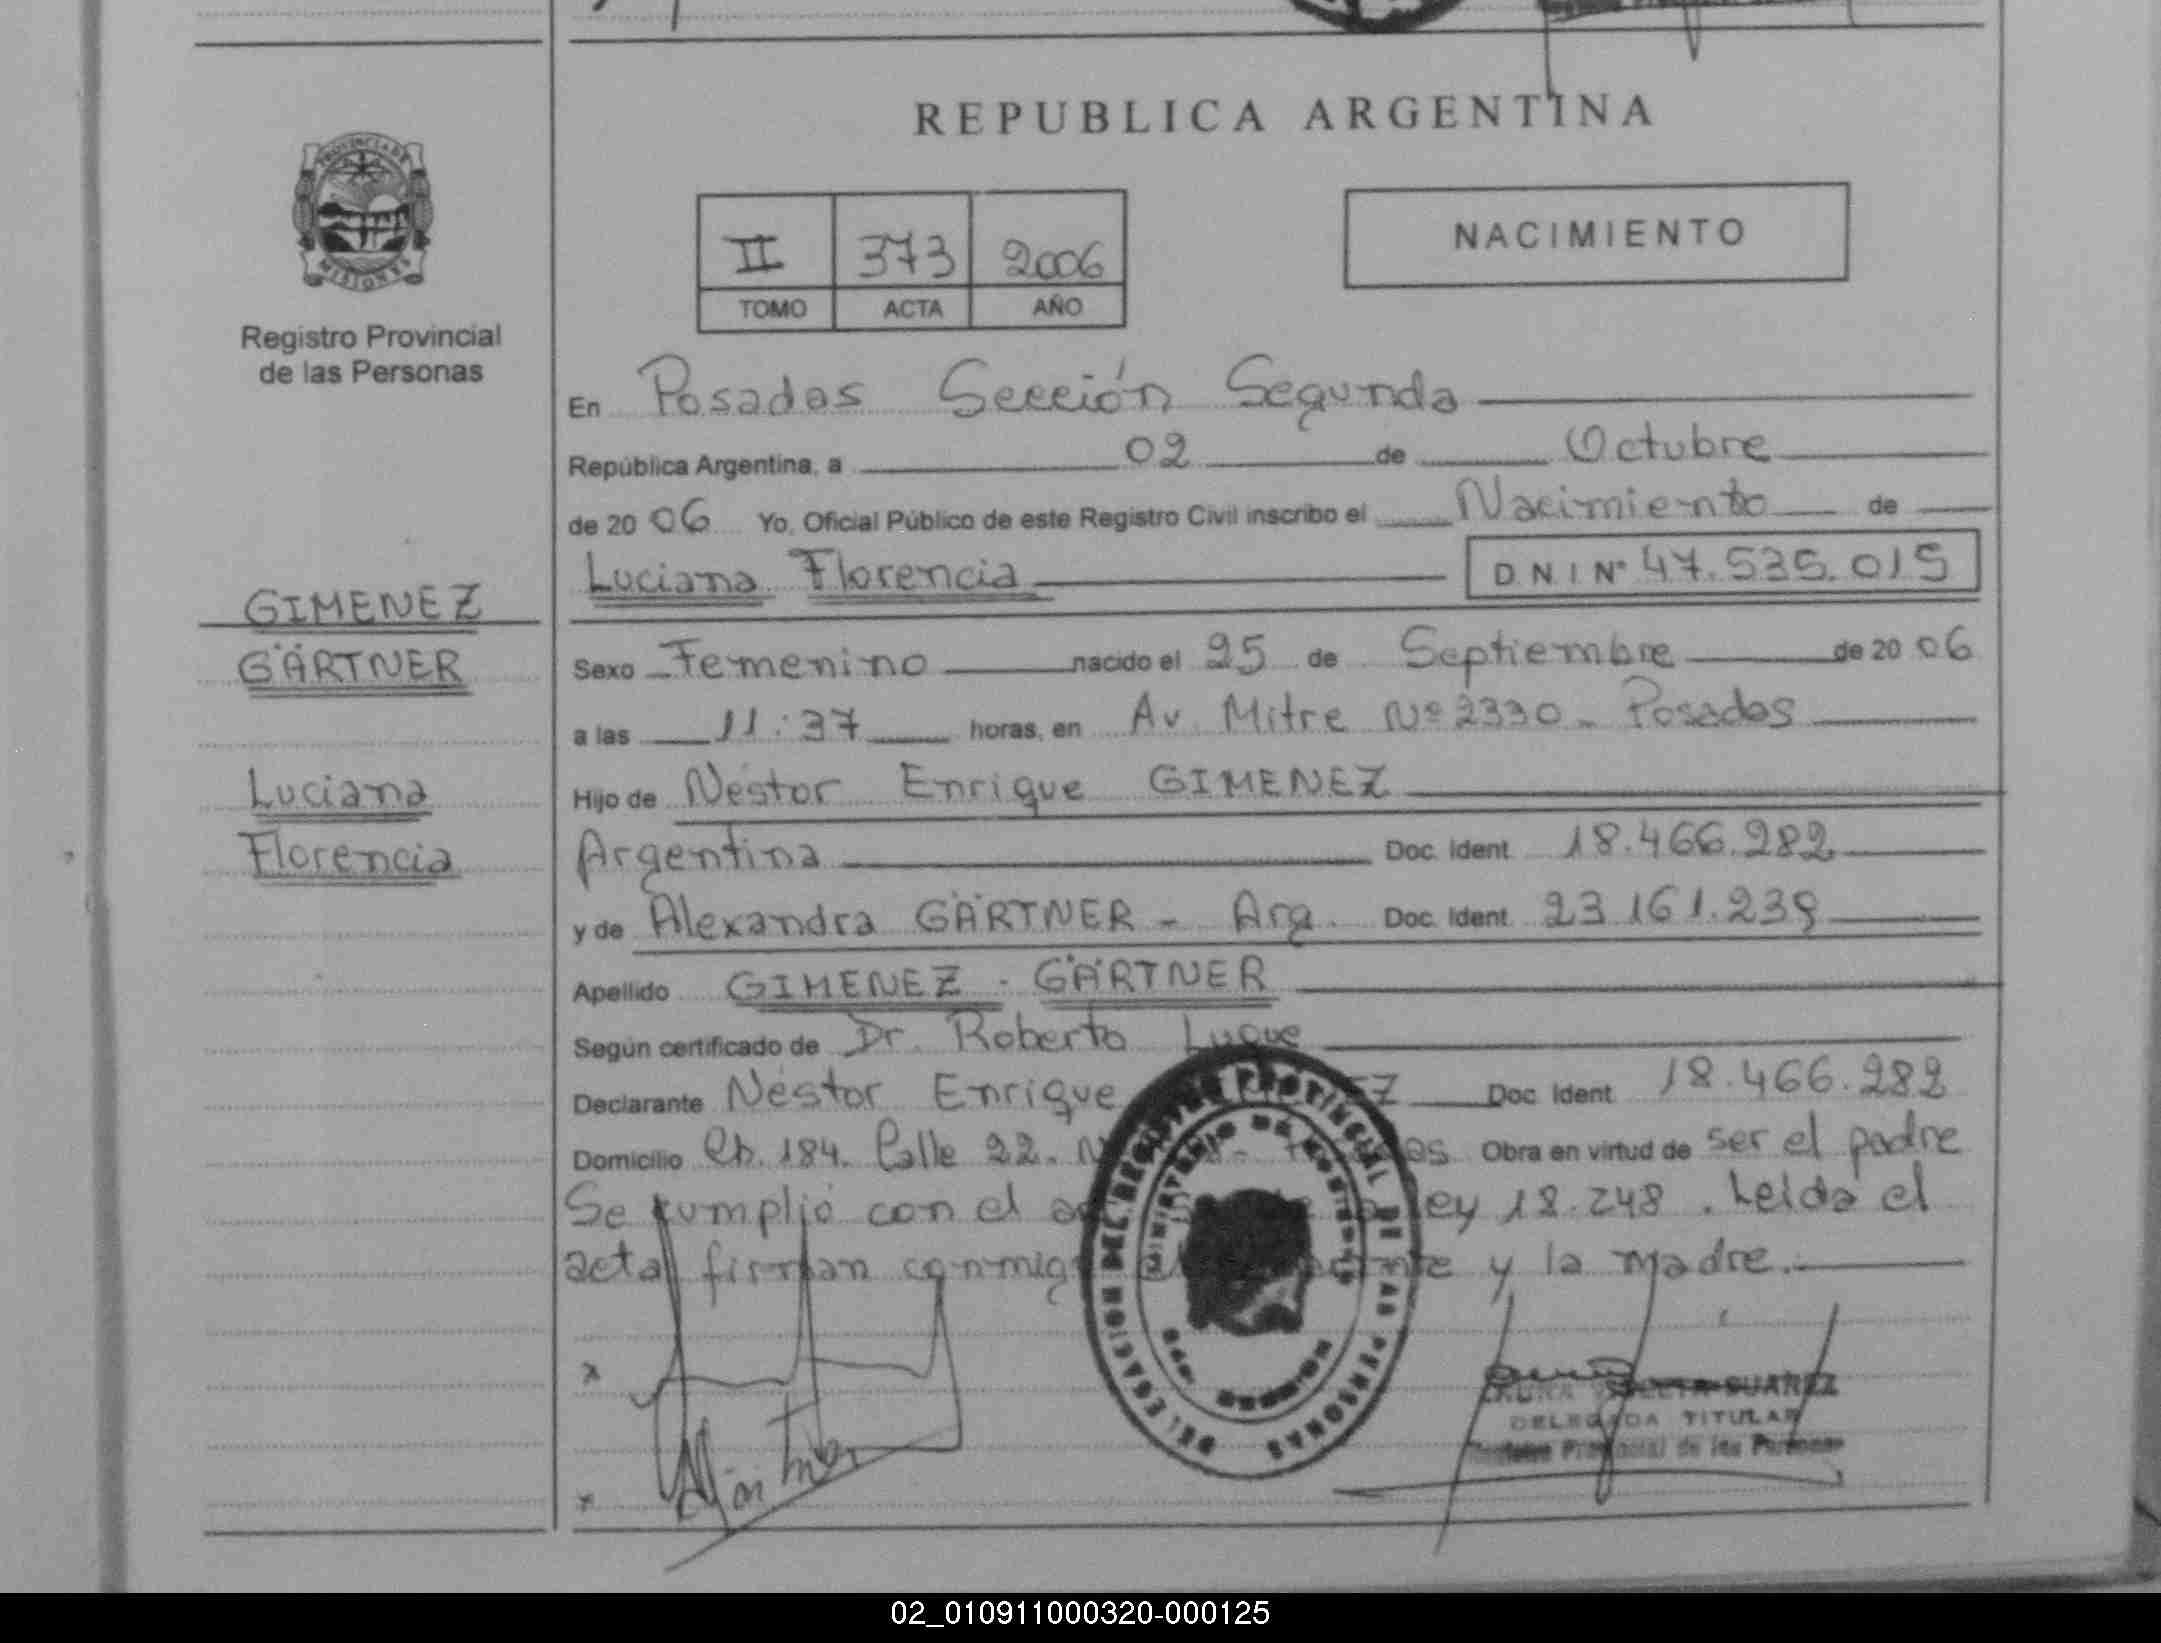 REPUBLICA ARGENTINA
PROVINCIA DE
MISIONES
Registro Provincial
de las Personas
II 373 2006
TOMO ACTA AÑO
NACIMIENTO
En Posadas Sección Segunda
República Argentina, a 02 de Octubre
de 2006 Yo, Oficial Público de este Registro Civil inscribo el Nacimiento de
Luciana Florencia D.N.I Nº 47.535.015
GIMENEZ
GÄRTNER
Luciana
Florencia
Sexo Femenino nacido el 25 de Septiembre de 2006
a las 11:37 horas, en Av. Mitre Nº 2330 - Posadas
Hijo de Néstor Enrique GIMENEZ
Argentina Doc. Ident. 18.466.282
y de Alexandra GÄRTNER - Arg. Doc. Ident. 23.161.239
Apellido GIMENEZ - GÄRTNER
Según certificado de Dr. Roberto Luque
Declarante Néstor Enrique Doc. Ident. 18.466.282
Domicilio Ch. 184. Calle 22. Obra en virtud de ser el padre
Se cumplió con el ley 18.248. Leida el
acta firman conmigo y la madre.
DELEGACION DEL REGISTRO PROVINCIAL DE LAS PERSONAS
SUAREZ
DELEGADA TITULAR
Registro Provincial de las Personas
02_010911000320-000125